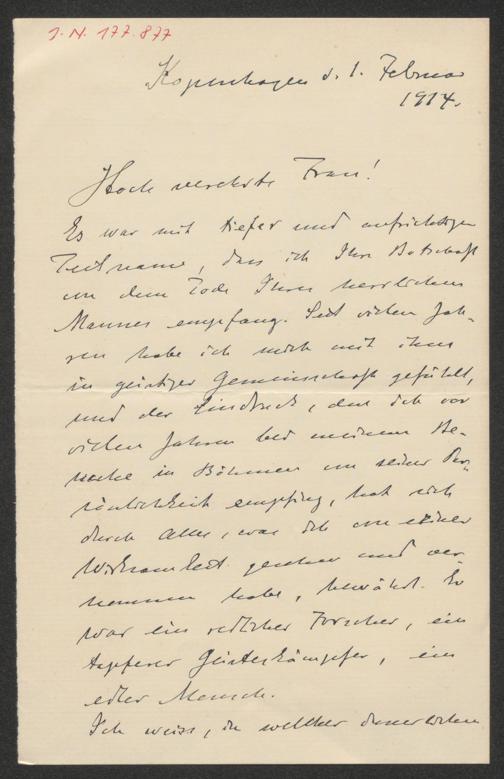 J. N. 177.877
Kopenhagen d. 1. Februar
1914.
Hoch verehrte Frau!
Es war mit tiefer und aufrichtiger
Teilname, dass ich Ihre Botschaft
um dem Tode Ihres herrlichen
Mannes empfang. Seit vielen Jah-
ren habe ich mich mit ihm
in geistiger Gemeinschaft gefühlt,
und der Eindruck, den ich vor
vielen Jahren bei meinem Be-
suche in Böhmen um seiner Per-
sönlichkeit empfing, hat sich
durch Alles, was ich um seiner
Wirksamkeit gesehen und ver-
nommen habe, bewährt. Er
war ein redlicher Forscher, ein
tapferer Geisteskämpfer, ein
edler Mensch.
Ich weiss, in welcher